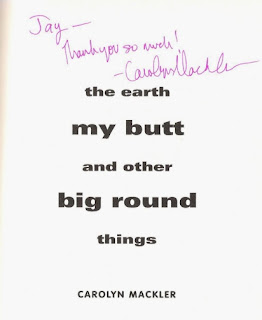 Jay —
Thank you so much!
- Carolyn Mackler
the earth
my butt
and other
big round
things
CAROLYN MACKLER